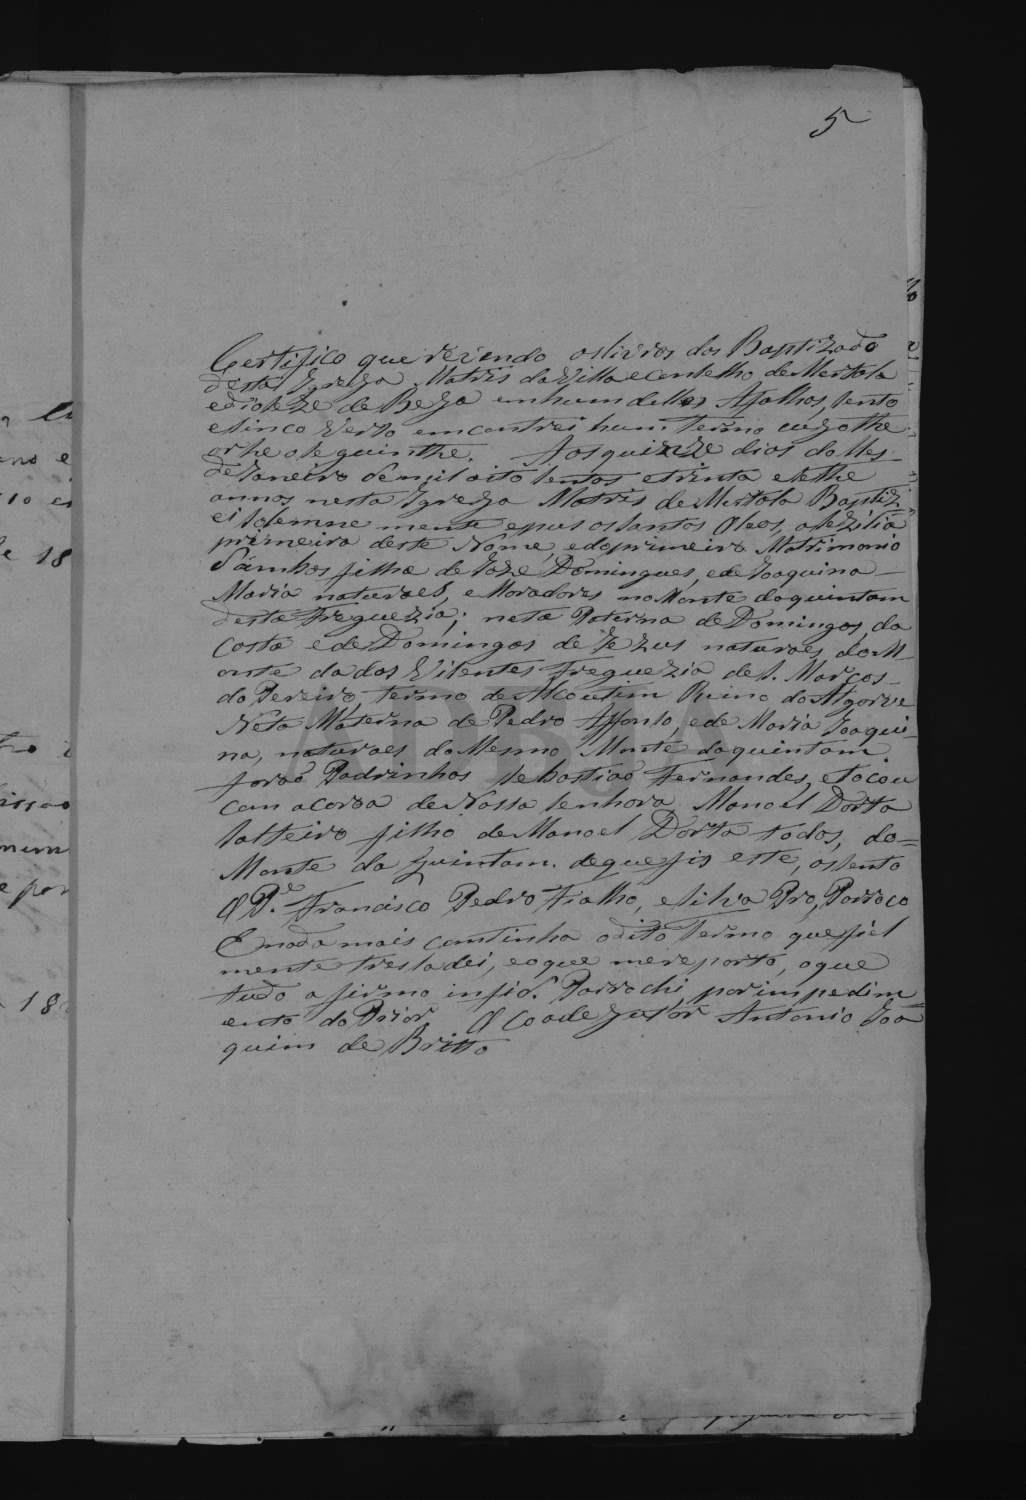 5
Certifico que revendo os livros dos Baptizado
desta Igreja Matris da Villa e conselho de Mertola
e dioseze de Beja em hum delles Afolhas, sento
e sinco Verso emcontrei hum termo cujo the
or he o seguinthe. Aos quinze dios do Mes-
de Janeiro de mil oito sentos e trinta e sethe
annos nesta Igreja Matris de Mertola Baptiz=
ei Solemne mente e pus os santos Oleos, a Sezilia
primeira deste Nome, e do primeiro Matrimonio
d'ambos filha de Joze Domingues, e de Joaquina-
Maria naturaes, e Moradores no Monte da quintam
desta Freguezia; neta Paterna de Domingos da
Costa e de Domingas de Jezus naturaes do M-
onte da dos Vicentes Freguezia de S. Marcos-
do Pereiro, termo de Alcoutim Reino do Algarve
Neta Materna de Pedro Affonso, e de Maria Joaqui-
na, naturaes do Mesmo Monte da quintam.
forão Padrinhos Sebastião Fernandes, e Tocou
com a coroa de Nossa Senhora Manoel Dorta
Solteiro filho de Manoel Dorta todos, do=
Monte da Quintam. de que fis este, os sento
O P.e Francisco Pedro Fialho, e Silva Pro, Parroco
E nada mais continha o dito Termo que fiel
mente tresladei, e o que me reporto, o que
tudo afirmo in fid. Parrochi, por impedim=
ento do Prior O Coadejutor Antonio Joa
quim de Britto
ADBJA